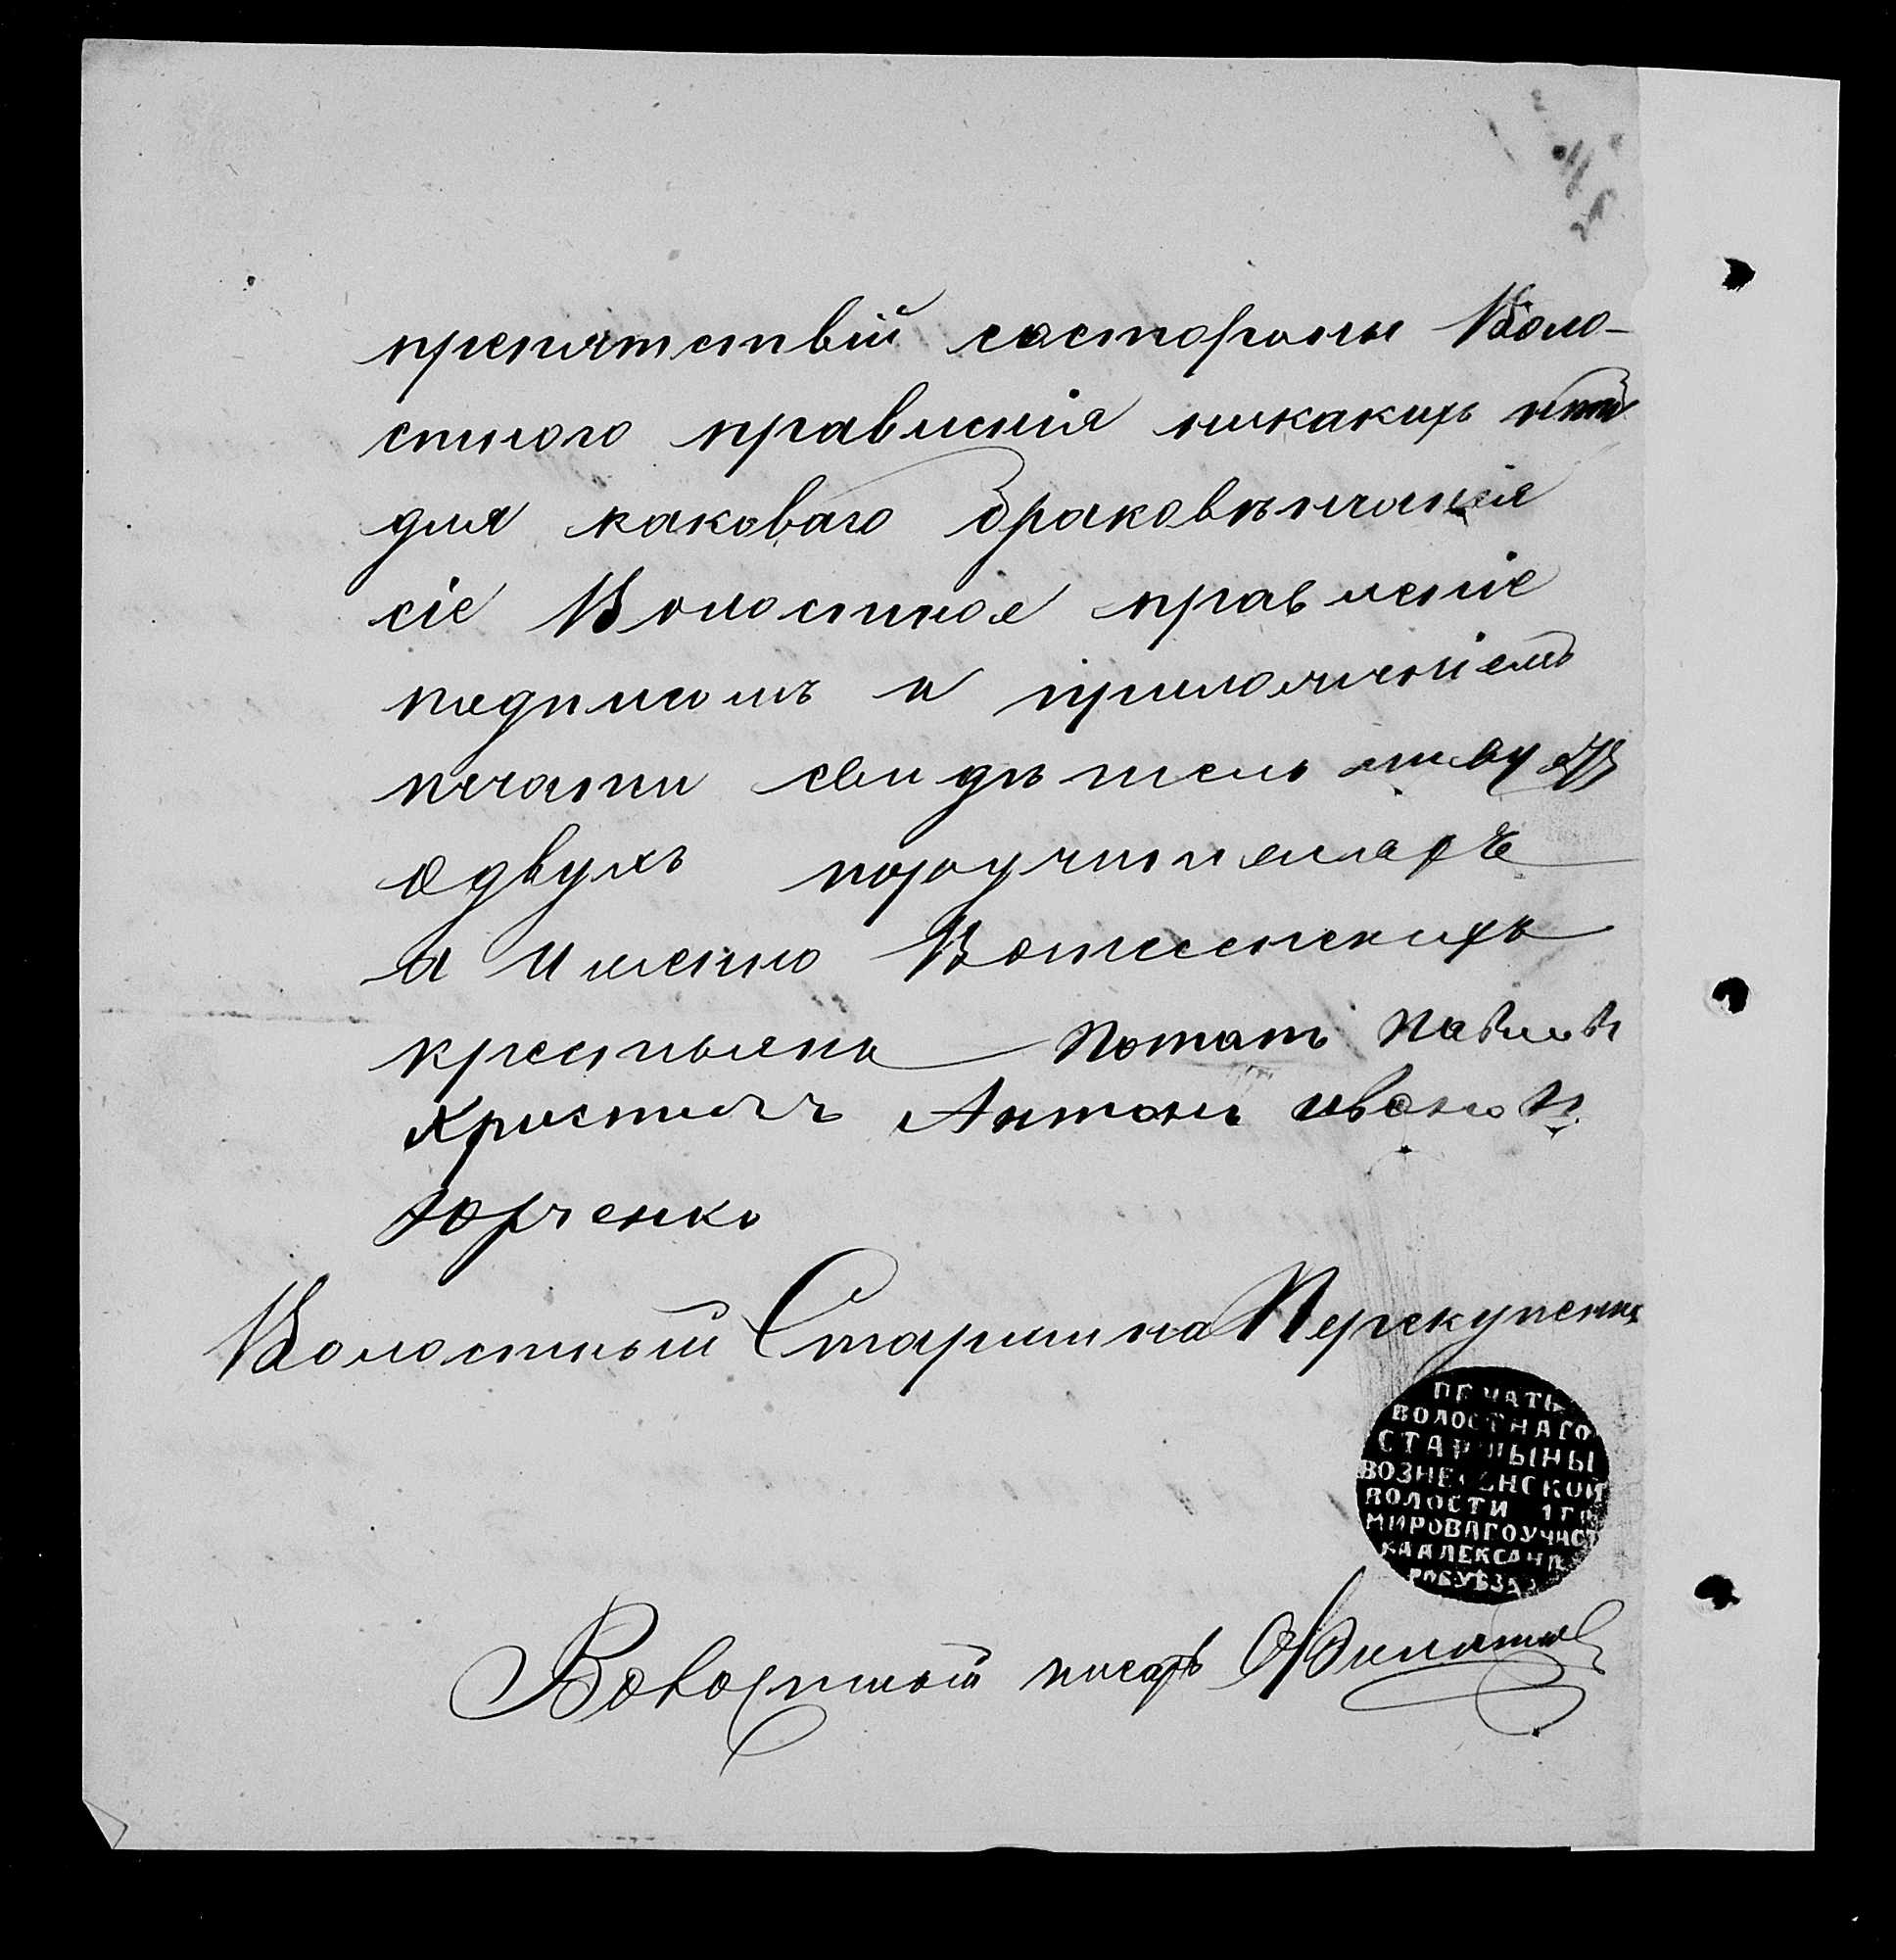 препятствій состороны Воло-
стного правленія никакихъ нѣтъ
для каковаго браковѣнчанія
сіе Волостное правленіе
подписомъ и приложеніемъ
печати свидѣтельствуетъ
Одвухъ поручителяхъ
а Именно Вознесенскихъ
крестьянъ Потапъ Павловъ
Христичъ Антонъ Ивановъ
Юрченко
Волостный Старшина Перекупенко
ПЕЧАТЬ
ВОЛОСТНАГО
СТАРШЫНЫ
ВОЗНЕСЕНСКОЙ
ВОЛОСТИ 1ГО
МИРОВАГОУЧАСТ
КААЛЕКСАНД
РОВУѢЗДА
Волостный писарь Филатов